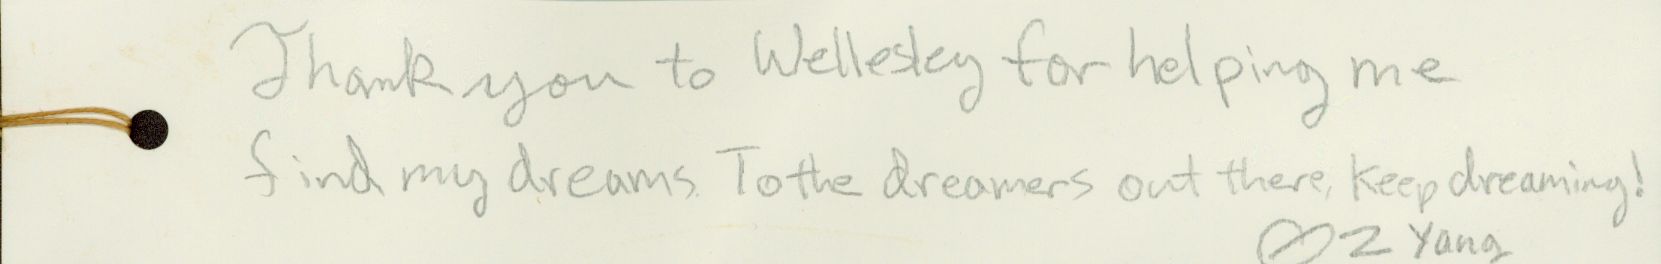 Thank you to Wellesley for helping me
find my dreams. To the dreamers out there, keep dreaming!
♡ Z Yang